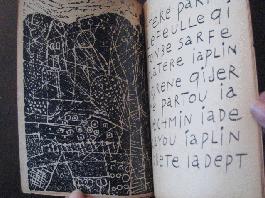 TERE PARTI
LE FEULLE QI
ONBE SAR FE
LATERE IAPLIN
RENE QIJER
E PARTOU IA
CHMIN IADE
YOU IAPLIN
ETE IADEPT